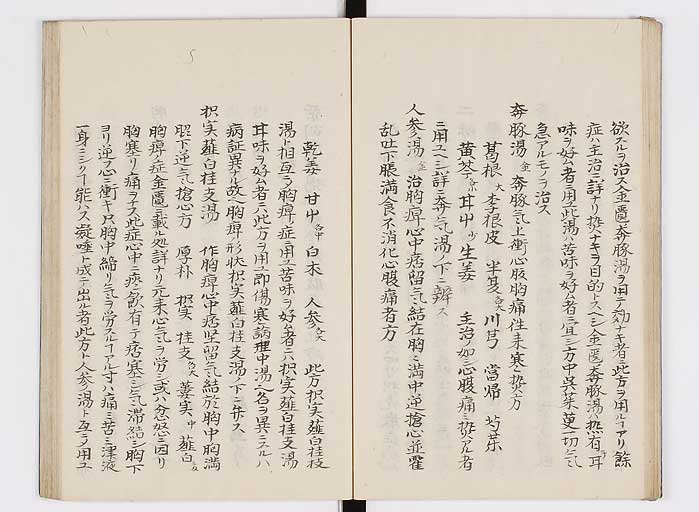 欲スルヲ治ス金匱奔豚湯ヲ用テ効ナキ者ニ此方ヲ用ルヿアリ餘
症ハ主治ニ詳ナリ拠ナキヲ目的トスヘシ金匱奔豚湯ハ熱有テ甘
味ヲ好ム者ニ用ユ此湯ハ苦味ヲ好ム者ニ宜シ方中呉茱萸一切ノ気
急アルモノヲ治ス
奔豚湯 金 奔豚気上衝心胸腹痛往来寒熱方
葛根 大 李根皮 半夏 川芎 當帰 芍薬
黄芩 甘中 生姜 主治ノ如ク心腹痛ニ拠アル者
ニ用ユヘシ詳ニ奔豚気湯ノ下ニ辨ス
人参湯 金 治胸痺心中痞留気結在胸ニ満中逆搶心並霍
乱吐下脹満食不消化心腹痛者方
乾姜 甘中 白朮 人参 此方枳実薤白桂枝
湯ト相互ニ胸痺ノ症ニ用ユ苦味ヲ好ム者ニハ枳実薤白桂支湯
甘味ヲ好ム者ニハ此方ヲ用ユ即傷寒論理中湯ナリ名ヲ異ニスルハ
病証異ナル故ヘ胸痺ノ形状枳実薤白桂支湯ノ下ニ弁ス
枳実薤白桂支湯 作胸痺心中痞堅留気結於胸中胸満
脇下逆気搶心方 厚朴 枳実 桂支 蔞実 中 薤白
胸痺ノ症金匱ニ載ル処詳ナリ元来心気ヲ労シ或ハ忿怒ニ因リ
胸塞リ痛ヲナス此症心中ニ痰飲有テ痞塞シ気滞結シ胸下
ヨリ逆シ心ニ衝キ只胸中締リ気ヲ労スルヿアル寸ハ痛ミ苦ミ津液
一身ニシクヿ能ハス凝唾ト成テ出ル者此方ト人参湯ト互ニ用ユ